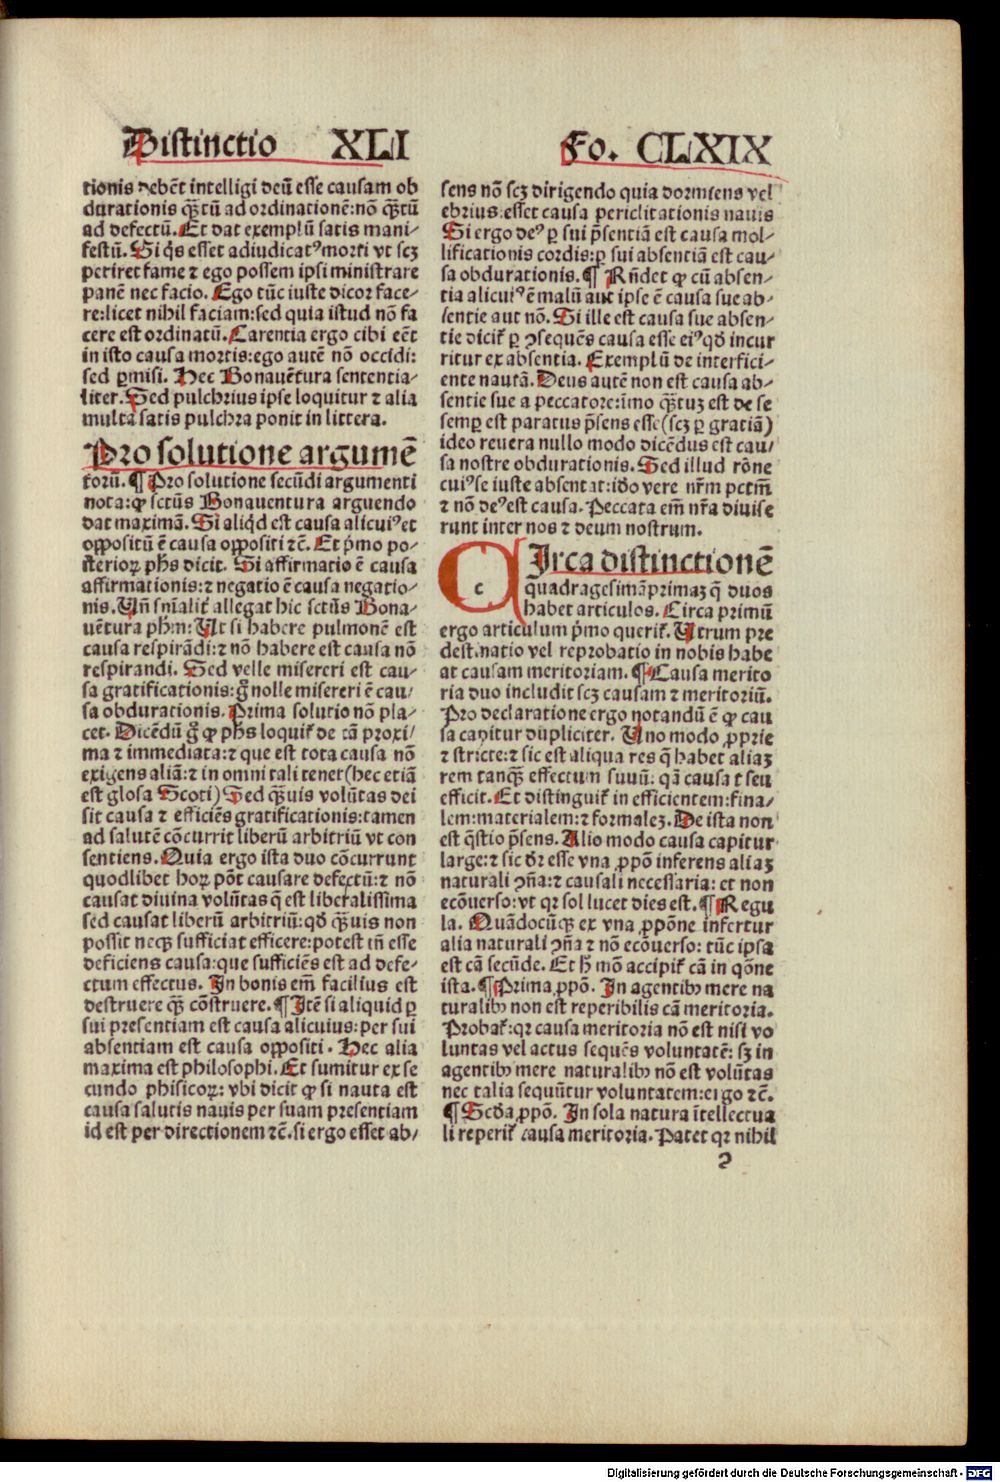 Distinctio XLI
Fo. CLXIX
tionis debēt intelligi deū esse causam ob
durationis q̄ʒtū ad ordinationē:nō q̄ʒtū
ad defectū. Et dat exemplū satis mani-
festū. Si q̇s esset adiudicatꝰ morti vt scʒ
periret fame ⁊ ego possem ipsi ministrare
panē nec facio. Ego tūc iuste dicor face-
re:licet nihil faciam:sed quia istud nō fa
cere est ordinatū. Carentia ergo cibi eēt
in isto causa mortis:ego autē nō occidi:
sed ꝑmisi. Hec Bonauētura sententia-
liter. Sed pulchrius ipse loquitur ⁊ alia
multa satis pulchra ponit in littera.
Pro solutione argumē
torū. ¶ Pro solutione secūdi argumenti
nota:ꝙ sctūs Bonauentura arguendo
dat maximā. Si aliqd est causa alicuiꝰ et
oppositū ē causa oppositi ⁊c̄. Et p̄mo po-
steriorꝝ ph̄s dicit. Si affirmatio ē causa
affirmationis:⁊ negatio ē causa negatio-
nis. Vn̄ sn̄ialiṫ allegat hic sctūs Bona-
uētura ph̄m: Vt si habere pulmonē est
causa respirādi:⁊ nō habere est causa nō
respirandi. Sed velle misereri est cau-
sa gratificationis:g̊ nolle misereri ē cau-
sa obdurationis. Prima solutio nō pla-
cet. Dicēdū g̊ ꝙ ph̄s loquiṫ de cā proxi-
ma ⁊ immediata:⁊ que est tota causa nō
exigens aliā:⁊ in omni tali tenet(hec etiā
est glosa Scoti) Sed q̄ʒuis volūtas dei
sit causa ⁊ efficiēs gratificationis:tamen
ad salutē cōcurrit liberū arbitriū vt con
sentiens. Quia ergo ista duo cōcurrunt
quodlibet horꝝ pōt causare defectū:⁊ nō
causat diuina volūtas q̄ est liberalissima
sed causat liberū arbitriū:qđ q̄ʒuis non
possit neqʒ sufficiat efficere:potest tn̄ esse
deficiens causa:que sufficiēs est ad defe-
ctum effectus. In bonis em̄ facilius est
destruere q̄ʒ cōstruere. ¶ Itē si aliquid ꝑ
sui presentiam est causa alicuius:per sui
absentiam est causa oppositi. Hec alia
maxima est philosophi. Et sumitur ex se
cundo phisicorꝝ: vbi dicit ꝙ si nauta est
causa salutis nauis per suam presentiam
id est per directionem ⁊c̄. si ergo esset ab-
sens nō scʒ dirigendo quia dormiens vel
ebrius:esset causa periclitationis nauis
Si ergo deꝰ ꝑ sui p̄sentiā est causa mol-
lificationis cordis:ꝑ sui absentiā est cau-
sa obdurationis. ¶ Rn̄det ꝙ cū absen-
tia alicuiꝰ ē malū aut ipse ē causa sue ab-
sentie aut nō. Si ille est causa sue absen-
tie diciṫ ꝑ ꝯsequēs causa esse eiꝰ qđ incur
ritur ex absentia. Exemplū de interfici-
ente nautā. Deus autē non est causa ab-
sentie sue a peccatore:imo q̄ʒtuʒ est de se
semꝑ est paratus p̄sens esse(scʒ ꝑ gratiā)
ideo reuera nullo modo dicēdus est cau-
sa nostre obdurationis. Sed illud rōne
cuiꝰ se iuste absentat:iđo vere nr̄m pctm̄
⁊ nō deꝰ est causa. Peccata em̄ nr̄a diuise
runt inter nos ⁊ deum nostrum.
c
Irca distinctionē
quadragesimāprimaʒ q̄ duos
habet articulos. Circa primū
ergo articulum p̄mo queriṫ. Vtrum pre
destinatio vel reprobatio in nobis habe
at causam meritoriam. ¶ Causa merito
ria duo includit scʒ causam ⁊ meritoriū.
Pro declaratione ergo notandū ē ꝙ cau
sa capitur dupliciter. Vno modo ꝓprie
⁊ stricte:⁊ sic est aliqua res q̄ habet aliaʒ
rem tanqʒ effectum suum: quā causat seu
efficit. Et distinguiṫ in efficientem:fina-
lem:materialem:⁊ formaleʒ. De ista non
est q̄stio p̄sens. Alio modo causa capitur
large:⁊ sic dr̄ esse vna ꝓpō inferens aliaʒ
naturali ꝯn̄a:⁊ causali necessaria: et non
ecōuerso:vt qꝛ sol lucet dies est. ¶ Regu
la. Quādocūqʒ ex vna ꝓpōne infertur
alia naturali ꝯn̄a ⁊ nō ecōuerso: tūc ipsa
est cā secūde. Et h̄ mō accipiṫ cā in q̄one
ista. ¶ Prima ꝓpō. In agentibꝰ mere na
turalibꝰ non est reperibilis cā meritoria.
Probaṫ:qꝛ causa meritoria nō est nisi vo
luntas vel actus sequēs voluntatē: sʒ in
agentibꝰ mere naturalibꝰ nō est volūtas
nec talia sequūtur voluntatem:ergo ⁊c̄.
¶ Scđa ꝓpō. In sola natura ītellectua
li reperiṫ causa meritoria. Patet qꝛ nihil
Digitalisierung gefördert durch die Deutsche Forschungsgemeinschaft - DFG